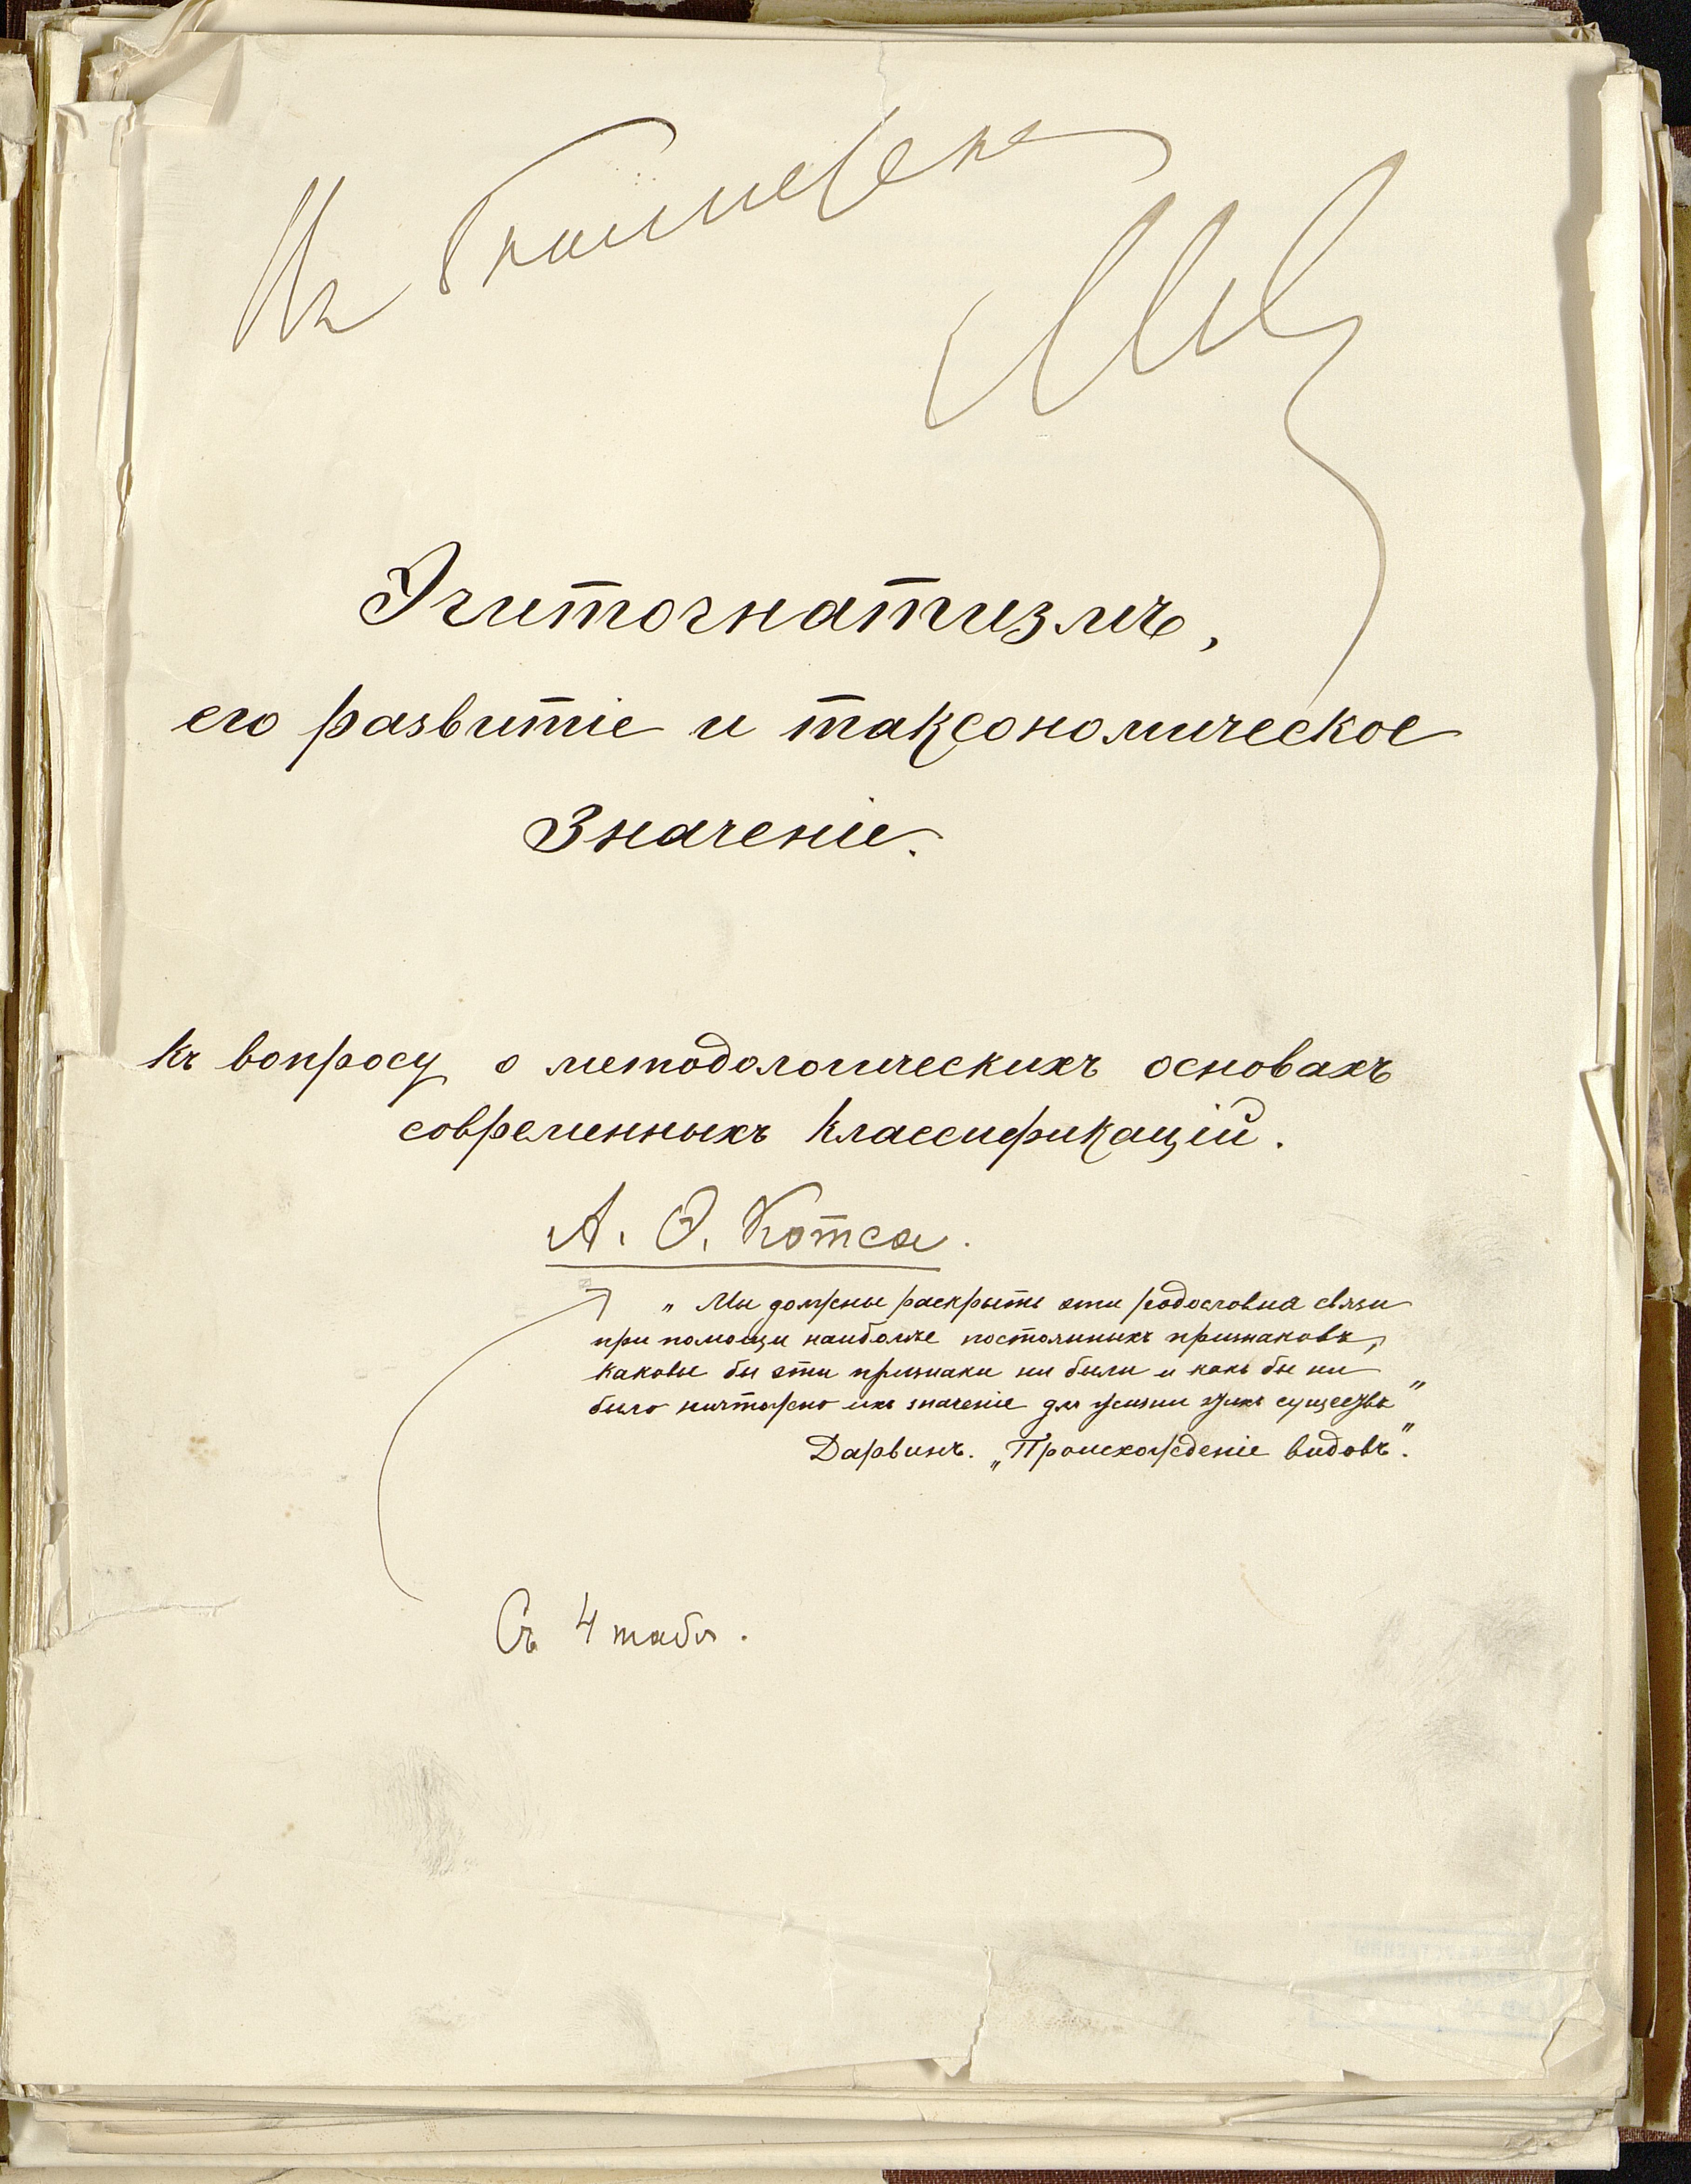 Эгитогнатизмъ,
его развитіе и таксономическое
значеніе.
Къ вопросу о методологическихъ основахъ
современныхъ классификацій.
А. Ѳ. Котса.
„Мы должны раскрыть эти родословныя связи
при помощи наиболѣе постоянныхъ признаковъ,
каковы бы эти признаки ни были и какъ бы ни
было ничтожно ихъ значеніе для жизни этихъ существъ"
Дарвинъ. „Происхожденіе видовъ".
Съ 4 табл.